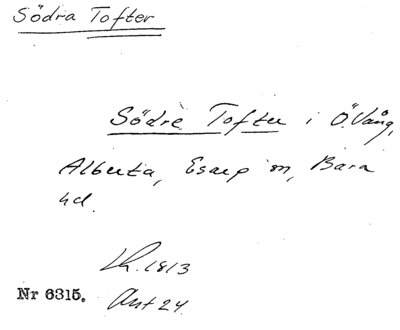 Södra Tofter
Södre Tofter i Ö. Vång,
Alberta, Esarp sn, Bara
hd.
Lh. 1813
Nr 6315. Akt 24